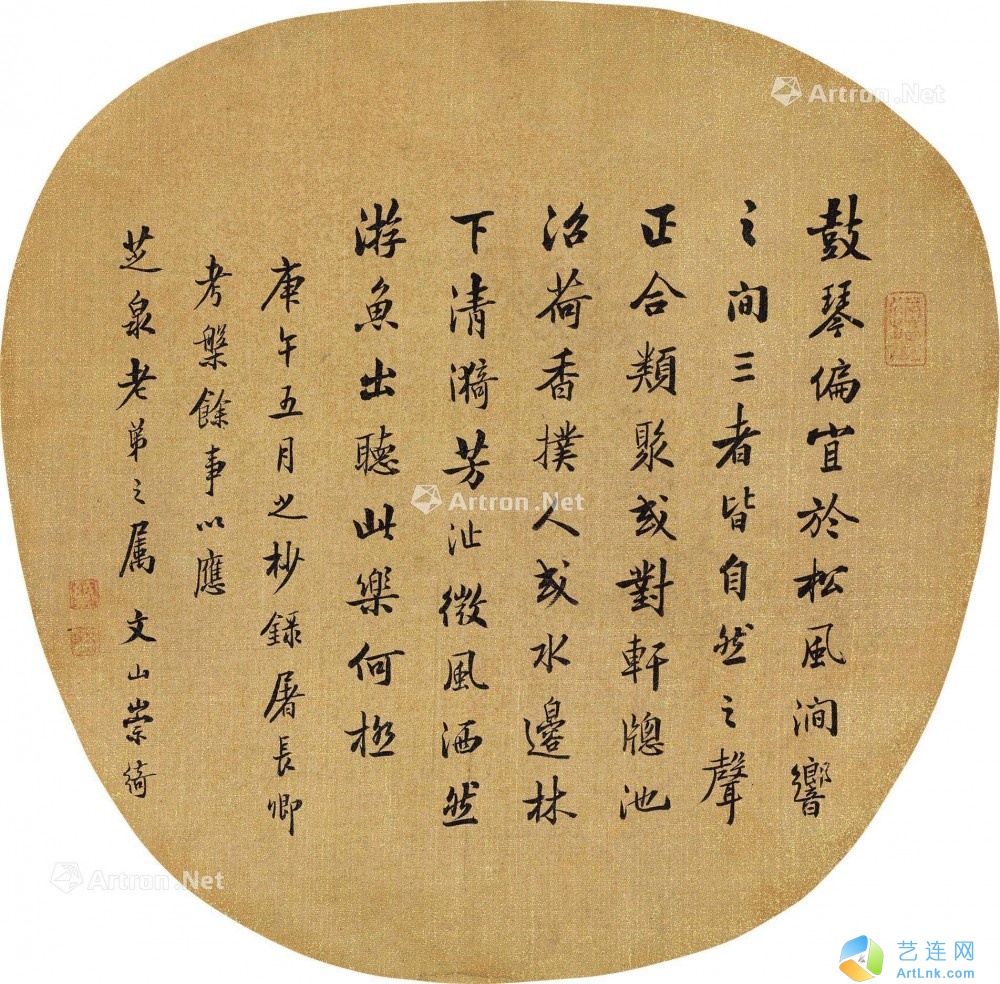 鼓琴偏宜於松風澗響
之間三者皆自然之聲
正合類聚或對軒牕池
沼荷香撲人或水邊林
下清漪芳沚微風洒然
游魚出聽此樂何極
庚午五月之杪錄屠長卿
考槃餘事以應
芝泉老弟之屬 文山崇綺
Artron.Net
Artron.Net
Artron.Net
艺连网
ArtLnk.com